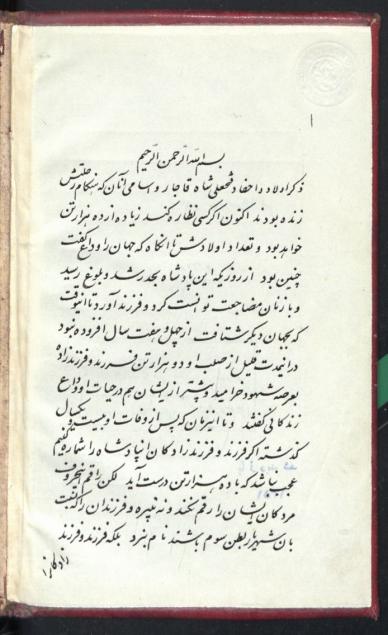 ۱
بسم الله الرحمن الرحیم
ذکر اولاد و احفاد فتحعلی شاه قاجار و اسامی آنان که هنگام رحلتش
زنده بودند اکنون اگر کسی نظاره کند زیاده از ده هزار تن
خواهد بود و تعداد اولادش تا آنگاه که جهان را وداع گفت
چنین بود از روزیکه این پادشاه بحد رشد و بلوغ رسید
و با زنان مضاجعت توانست کرد و فرزند آورد تا آنوقت
که بجهان دیگر شتافت از چهل و هفت سال افزوده نبود
در این مدت قلیل از صلب او دو هزار تن فرزند و فرزندزاده
بعرصه شهود خرامید و بیشتر از ایشان هم در حیات او وداع
زندگانی گفتند و تا این زمان که پس از وفات او بیست و یکسال
گذشته اگر فرزند و فرزندزادگان این پادشاه را شماره کنیم
عجب نباشد که با ده هزار تن درست آید لکن راقم حروف
مردگان ایشان را رقم نکند و نه نبیره و فرزندان را که نسبت
بان شهریار بطن سوم باشند نام نبرد بلکه فرزند و فرزند
زادگانرا